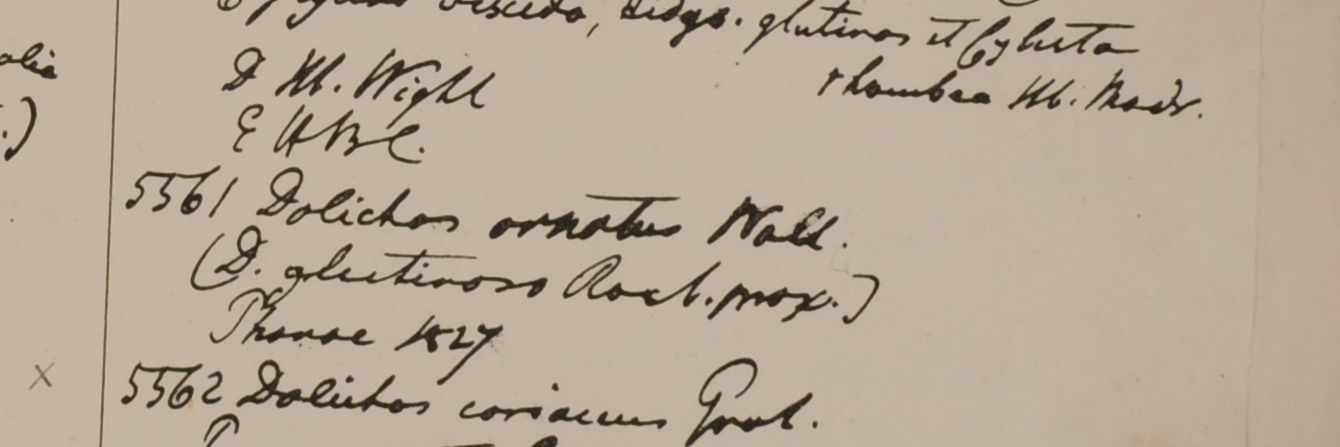 viscida, glutinos et Cylista
D Hb. Wight
rhombea Hb. Madr.
E HBC.
5561 Dolichos ornatus Wall.
(D. glutinoso Roxb. prox.)
1827
x
5562 Dolichos coriaceus Grah.